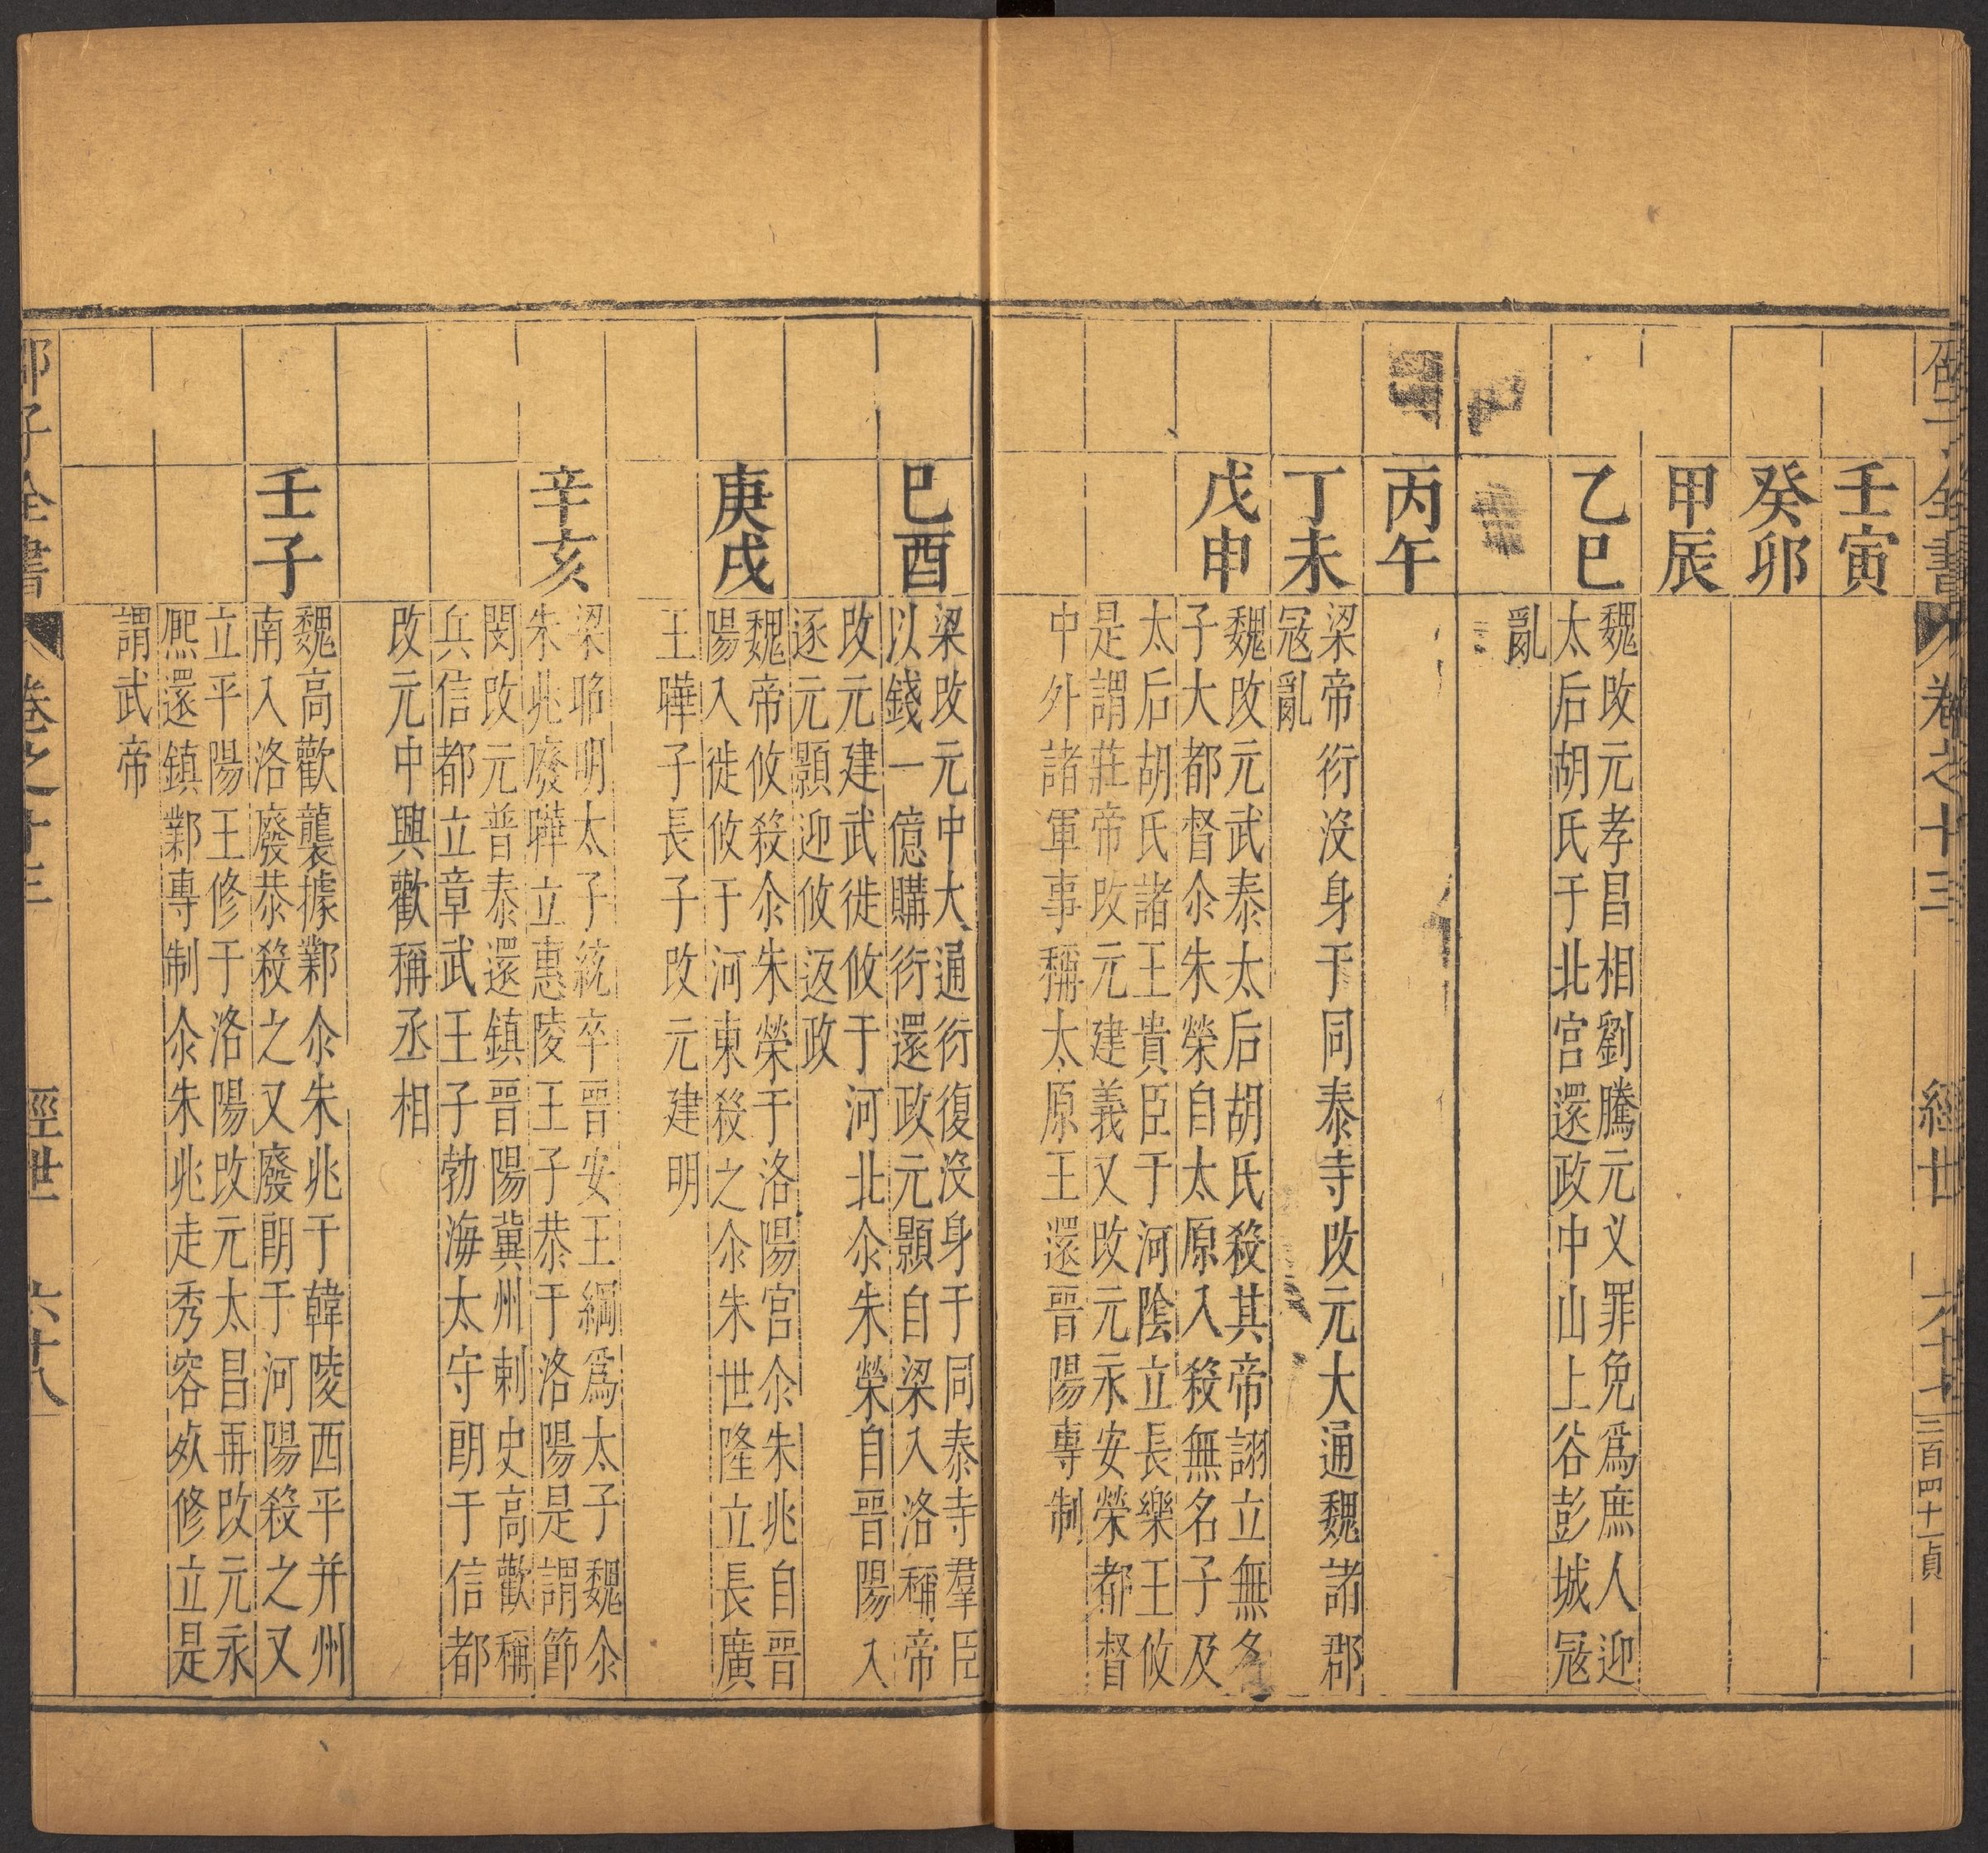 卷之十三
經世
三百四十一貞
壬寅
癸卯
甲辰
乙巳
魏改元孝昌相劉騰元义罪免爲庶人迎
太后胡氏于北宫還政中山上谷彭城宼
亂
丙午
丁未
梁帝衍沒身于同泰寺改元大通魏諸郡
宼亂
戊申
魏改元武泰太后胡氏殺其帝詡立無名
子大都督尒朱榮自太原入殺無名子及
太后胡氏諸王貴臣于河陰立長樂王攸
是謂莊帝改元建義又改元永安榮都督
中外諸軍事稱太原王還晉陽專制
巳酉
梁改元中大通衍復沒身于同泰寺羣臣
以錢一億購衍還政元顥自梁入洛稱帝
改元建武徙攸于河北尒朱榮自晉陽入
逐元顥迎攸返政
庚戌
魏帝攸殺尒朱榮于洛陽宫尒朱兆自晉
陽入徙攸于河東殺之尒朱世隆立長廣
王曄子長子改元建明
辛亥
梁昭明太子統卒晉安王綱爲太子魏尒
朱兆廢曄立惠陵王子恭于洛陽是謂節
閔改元普泰還鎮晉陽冀州剌史高歡稱
兵信都立章武王子勃海太守朗于信都
改元中興歡稱丞相
壬子
魏高歡襲據鄴尒朱兆于韓陵西平并州
南入洛廢恭殺之又廢朗于河陽殺之又
立平陽王修于洛陽改元太昌再改元永
熈還鎮鄴專制尒朱兆走秀容㱔修立是
謂武帝
子全書
經世
六十八